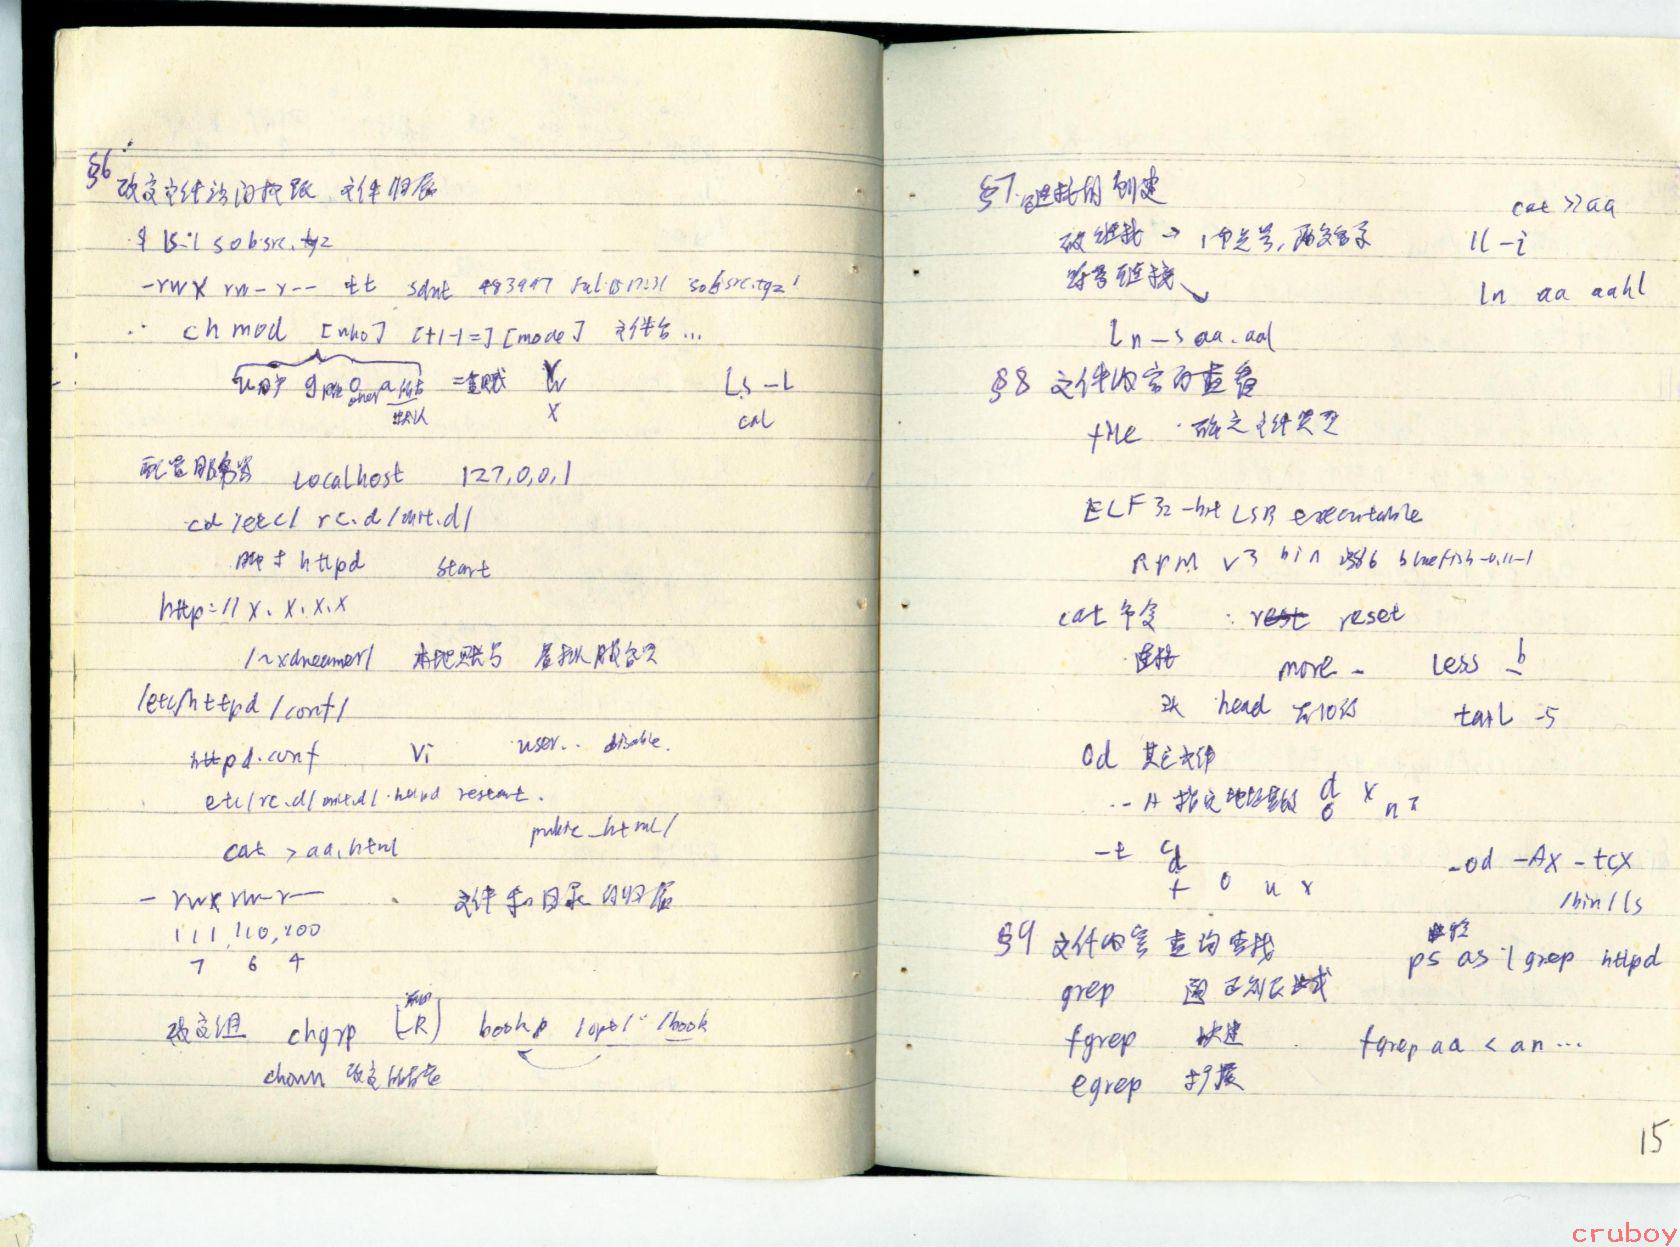 §6
改变文件访问权限 文件归属
$ ls -l sobsrc.tgz
-rwx rw- r-- tt 483997 Jul 15 17:31 sobsrc.tgz
chmod [who] [+|-|=] [mode] 文件名...
u用户 g o other a 所有 =重赋 r w ls -l
默认 x cal
配置服务器 localhost 127.0.0.1
cd /etc/rc.d/init.d/
httpd start
http://x.x.x.x
/~xdreamer/ 本地账号 虚拟服务
/etc/httpd/conf/
httpd.conf vi user.. disable.
etc/rc.d/init.d/httpd restart.
public_html/
cat > aa.html
- rwx rw- r-- 文件和目录的归属
111,110,100
7 6 4
改变组 chgrp [-R] book /opt/ /book
chown 改变所有者
§7. 链接的创建
cat >> aa
硬链接 → 1个节点号,两文件名 ll -i
符号链接 ln aa aahl
ln -s aa. aal
§8 文件内容的查看
file 确定文件类型
ELF 32-bit LSB executable
RPM v3 bin i386 bluefish-0.11-1
cat 命令 : reset
连接 more less b
头 head 前10行 tail -5
od 其它文件
-A 指定地址基数 d o x n
-t c d
f o u x
-od -Ax -tcx
/bin/ls
§9 文件内容查询查找
ps as | grep httpd
grep 正则表达式
fgrep 快速 fgrep aa < an ...
egrep 扩展
15
cruboy